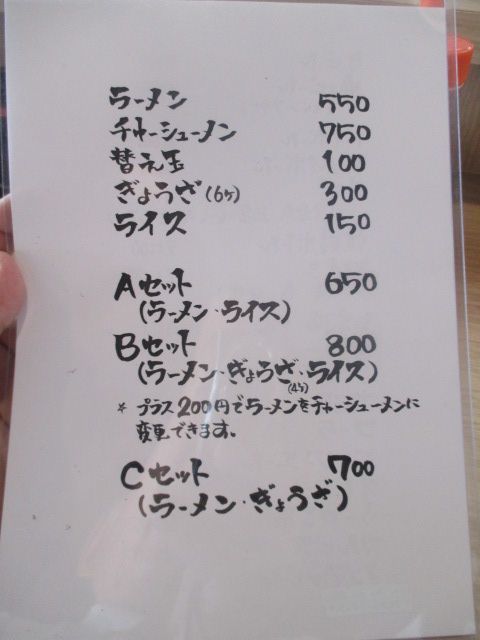 ラーメン 550
チャーシューメン 750
替え玉 100
ぎょうざ(6ヶ) 300
ライス 150
Aセット 650
(ラーメン・ライス)
Bセット 800
(ラーメン・ぎょうざ・ライス)
(4ヶ)
* プラス200円でラーメンをチャーシューメンに
変更できます。
Cセット 700
(ラーメン・ぎょうざ)